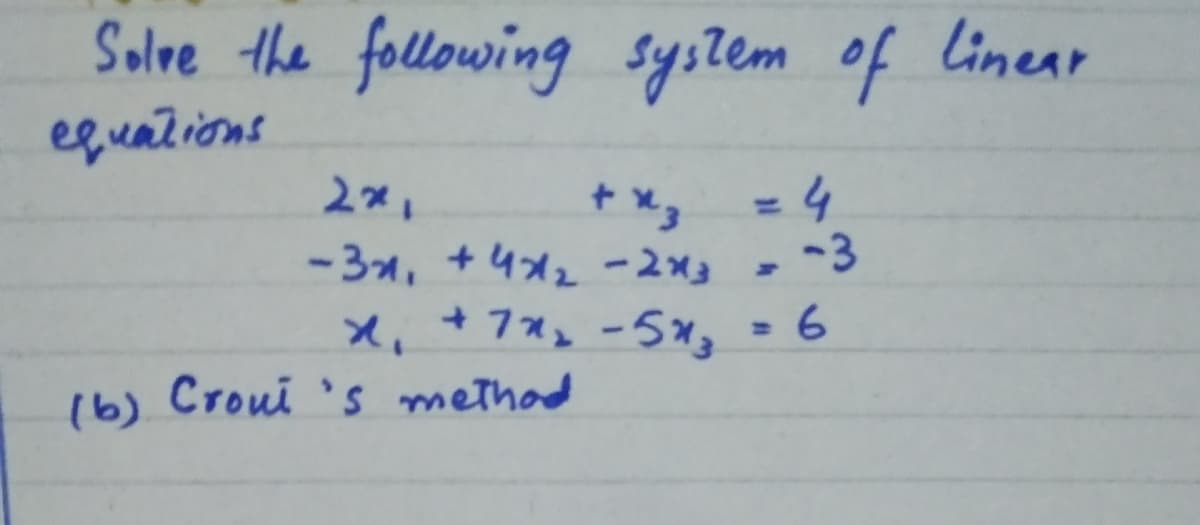 Solve the following system of linear
equations
2x₁ + x₃ = 4
-3x₁ + 4x₂ - 2x₃ = -3
x₁ + 7x₂ - 5x₃ = 6
(b) Crout's method